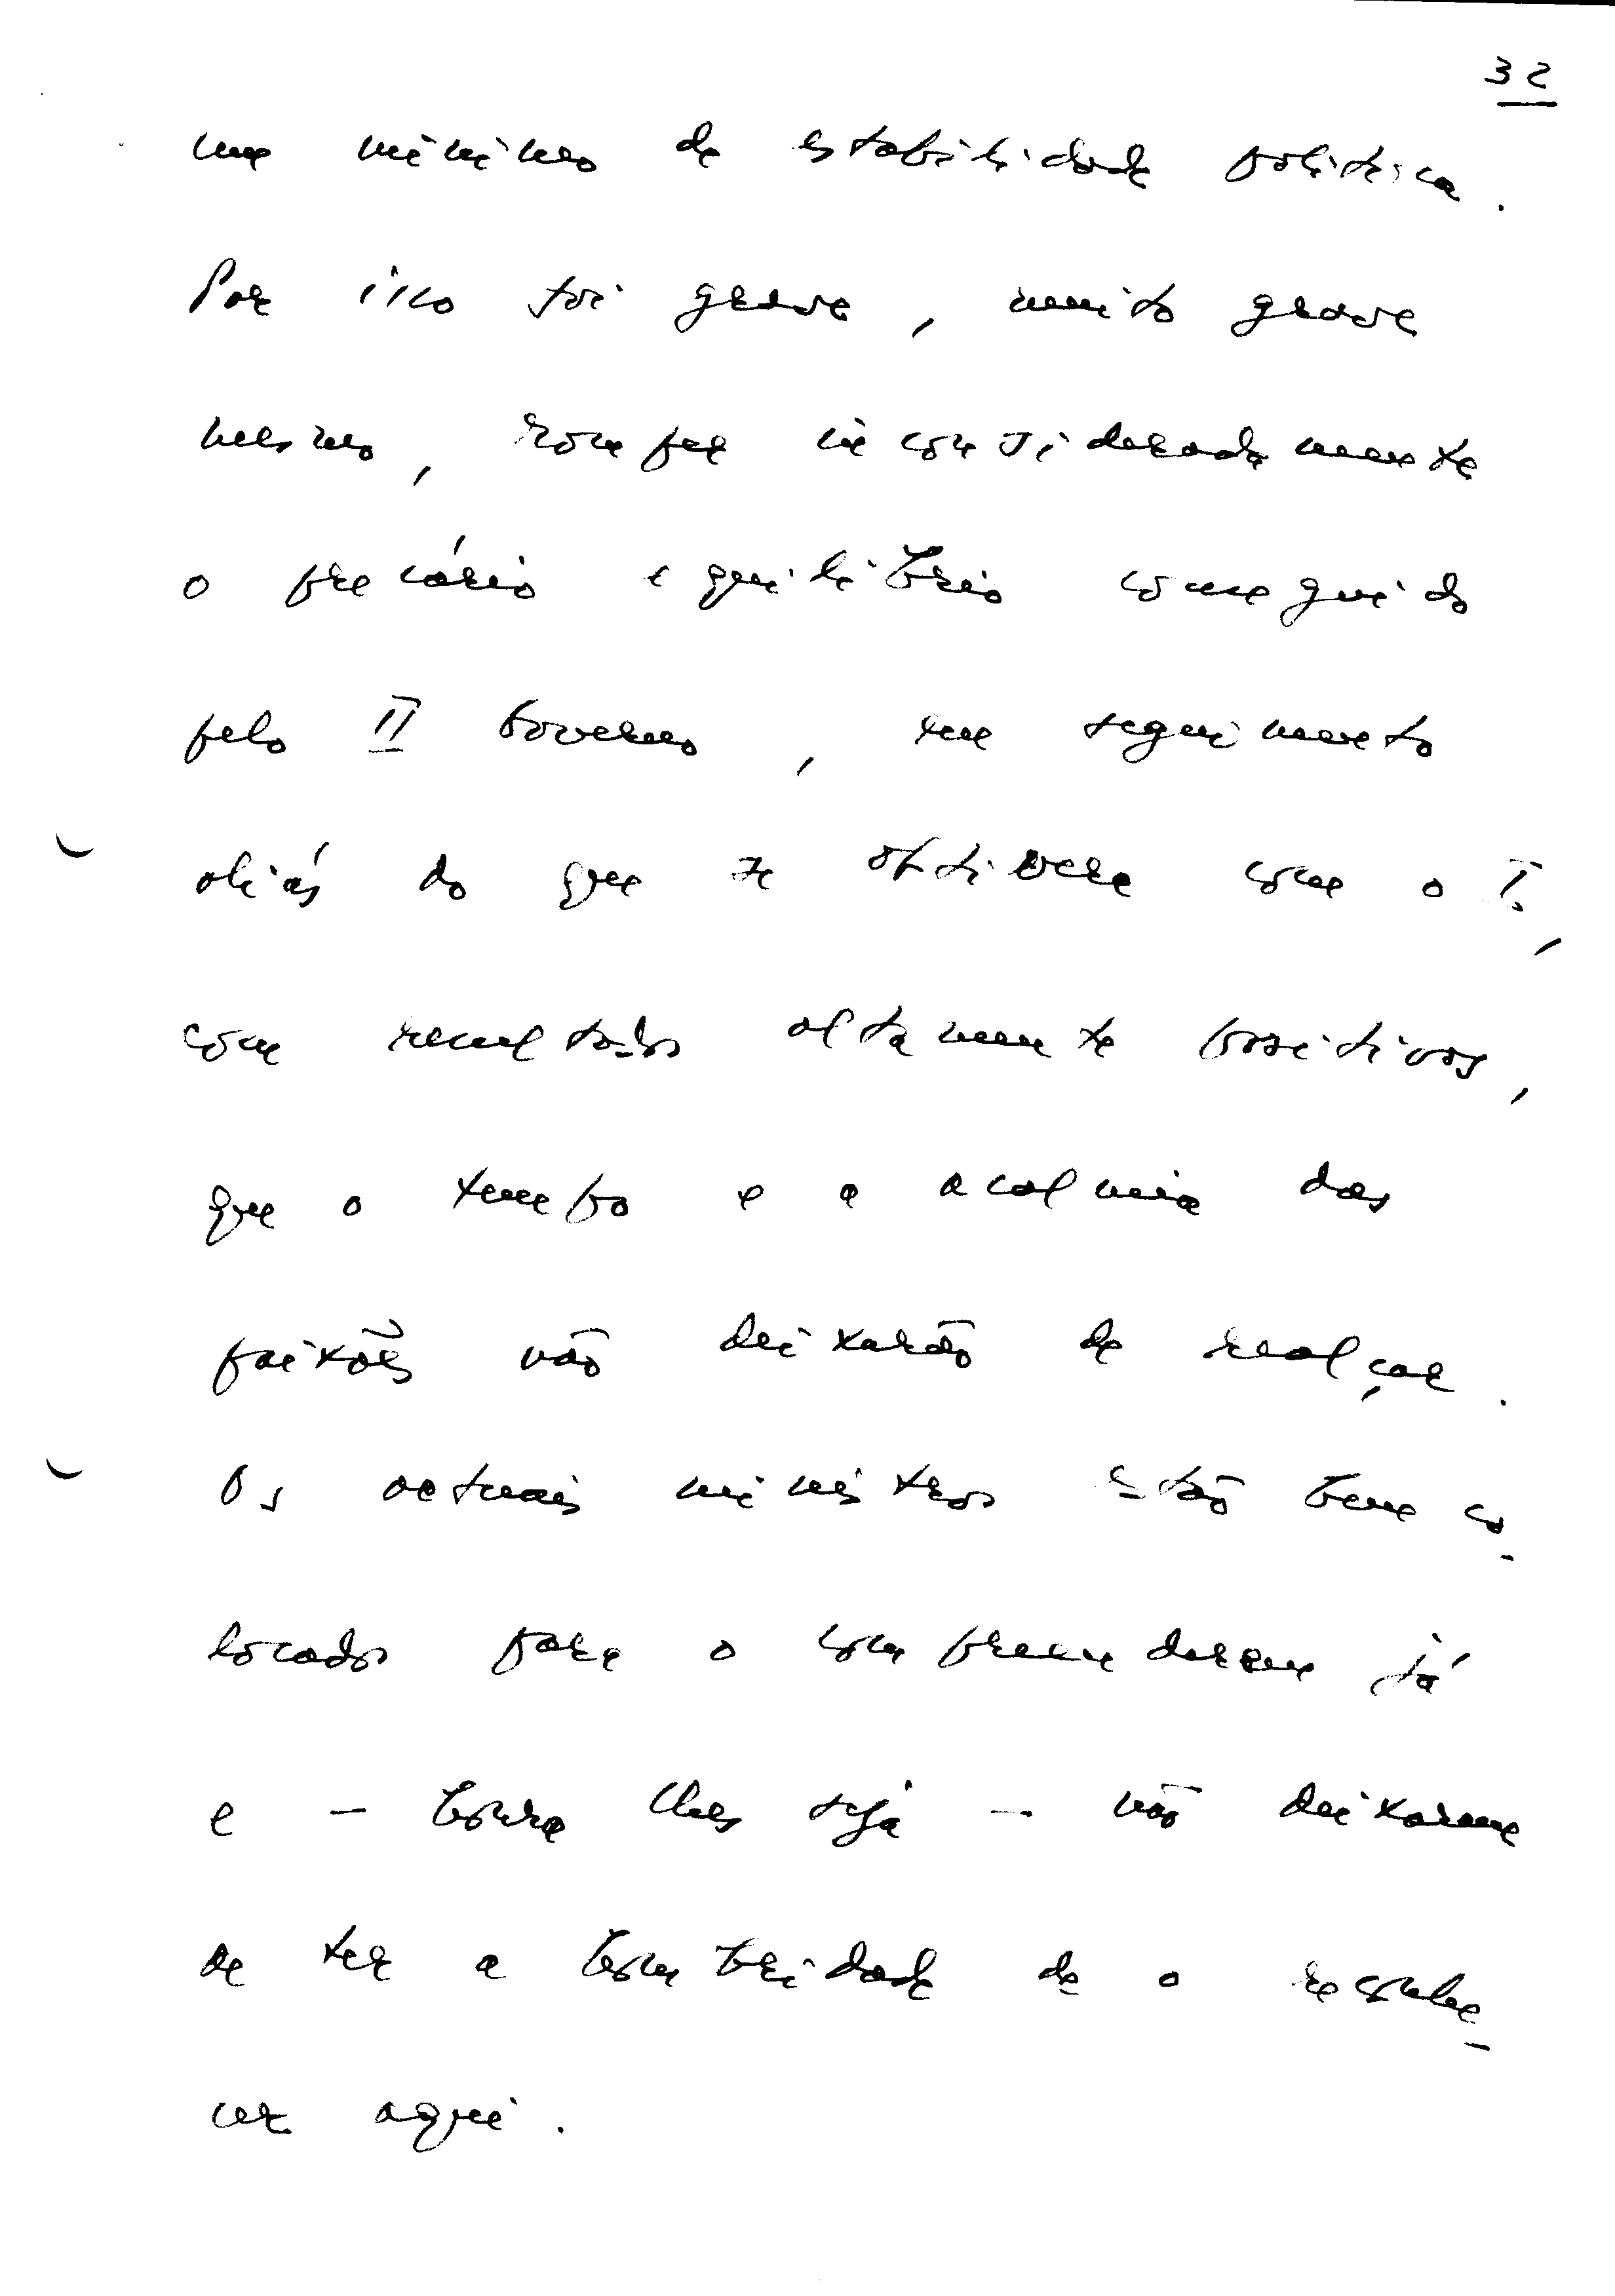 32
um mínimo de estabilidade política.
Por isso foi grave, muito grave
mesmo, romper inconsideradamente
o precário equilíbrio conseguido
pelo II Governo, em seguimento
aliás do que se obtivera com o I,
com resultados altamente positivos,
que o tempo e a acalmia das
paixões não deixarão de realçar.
Os actuais ministros estão bem co-
locados para o compreenderem já
e – honra lhes seja – não deixarem
de ter a hombridade de o reconhe-
cer aqui.